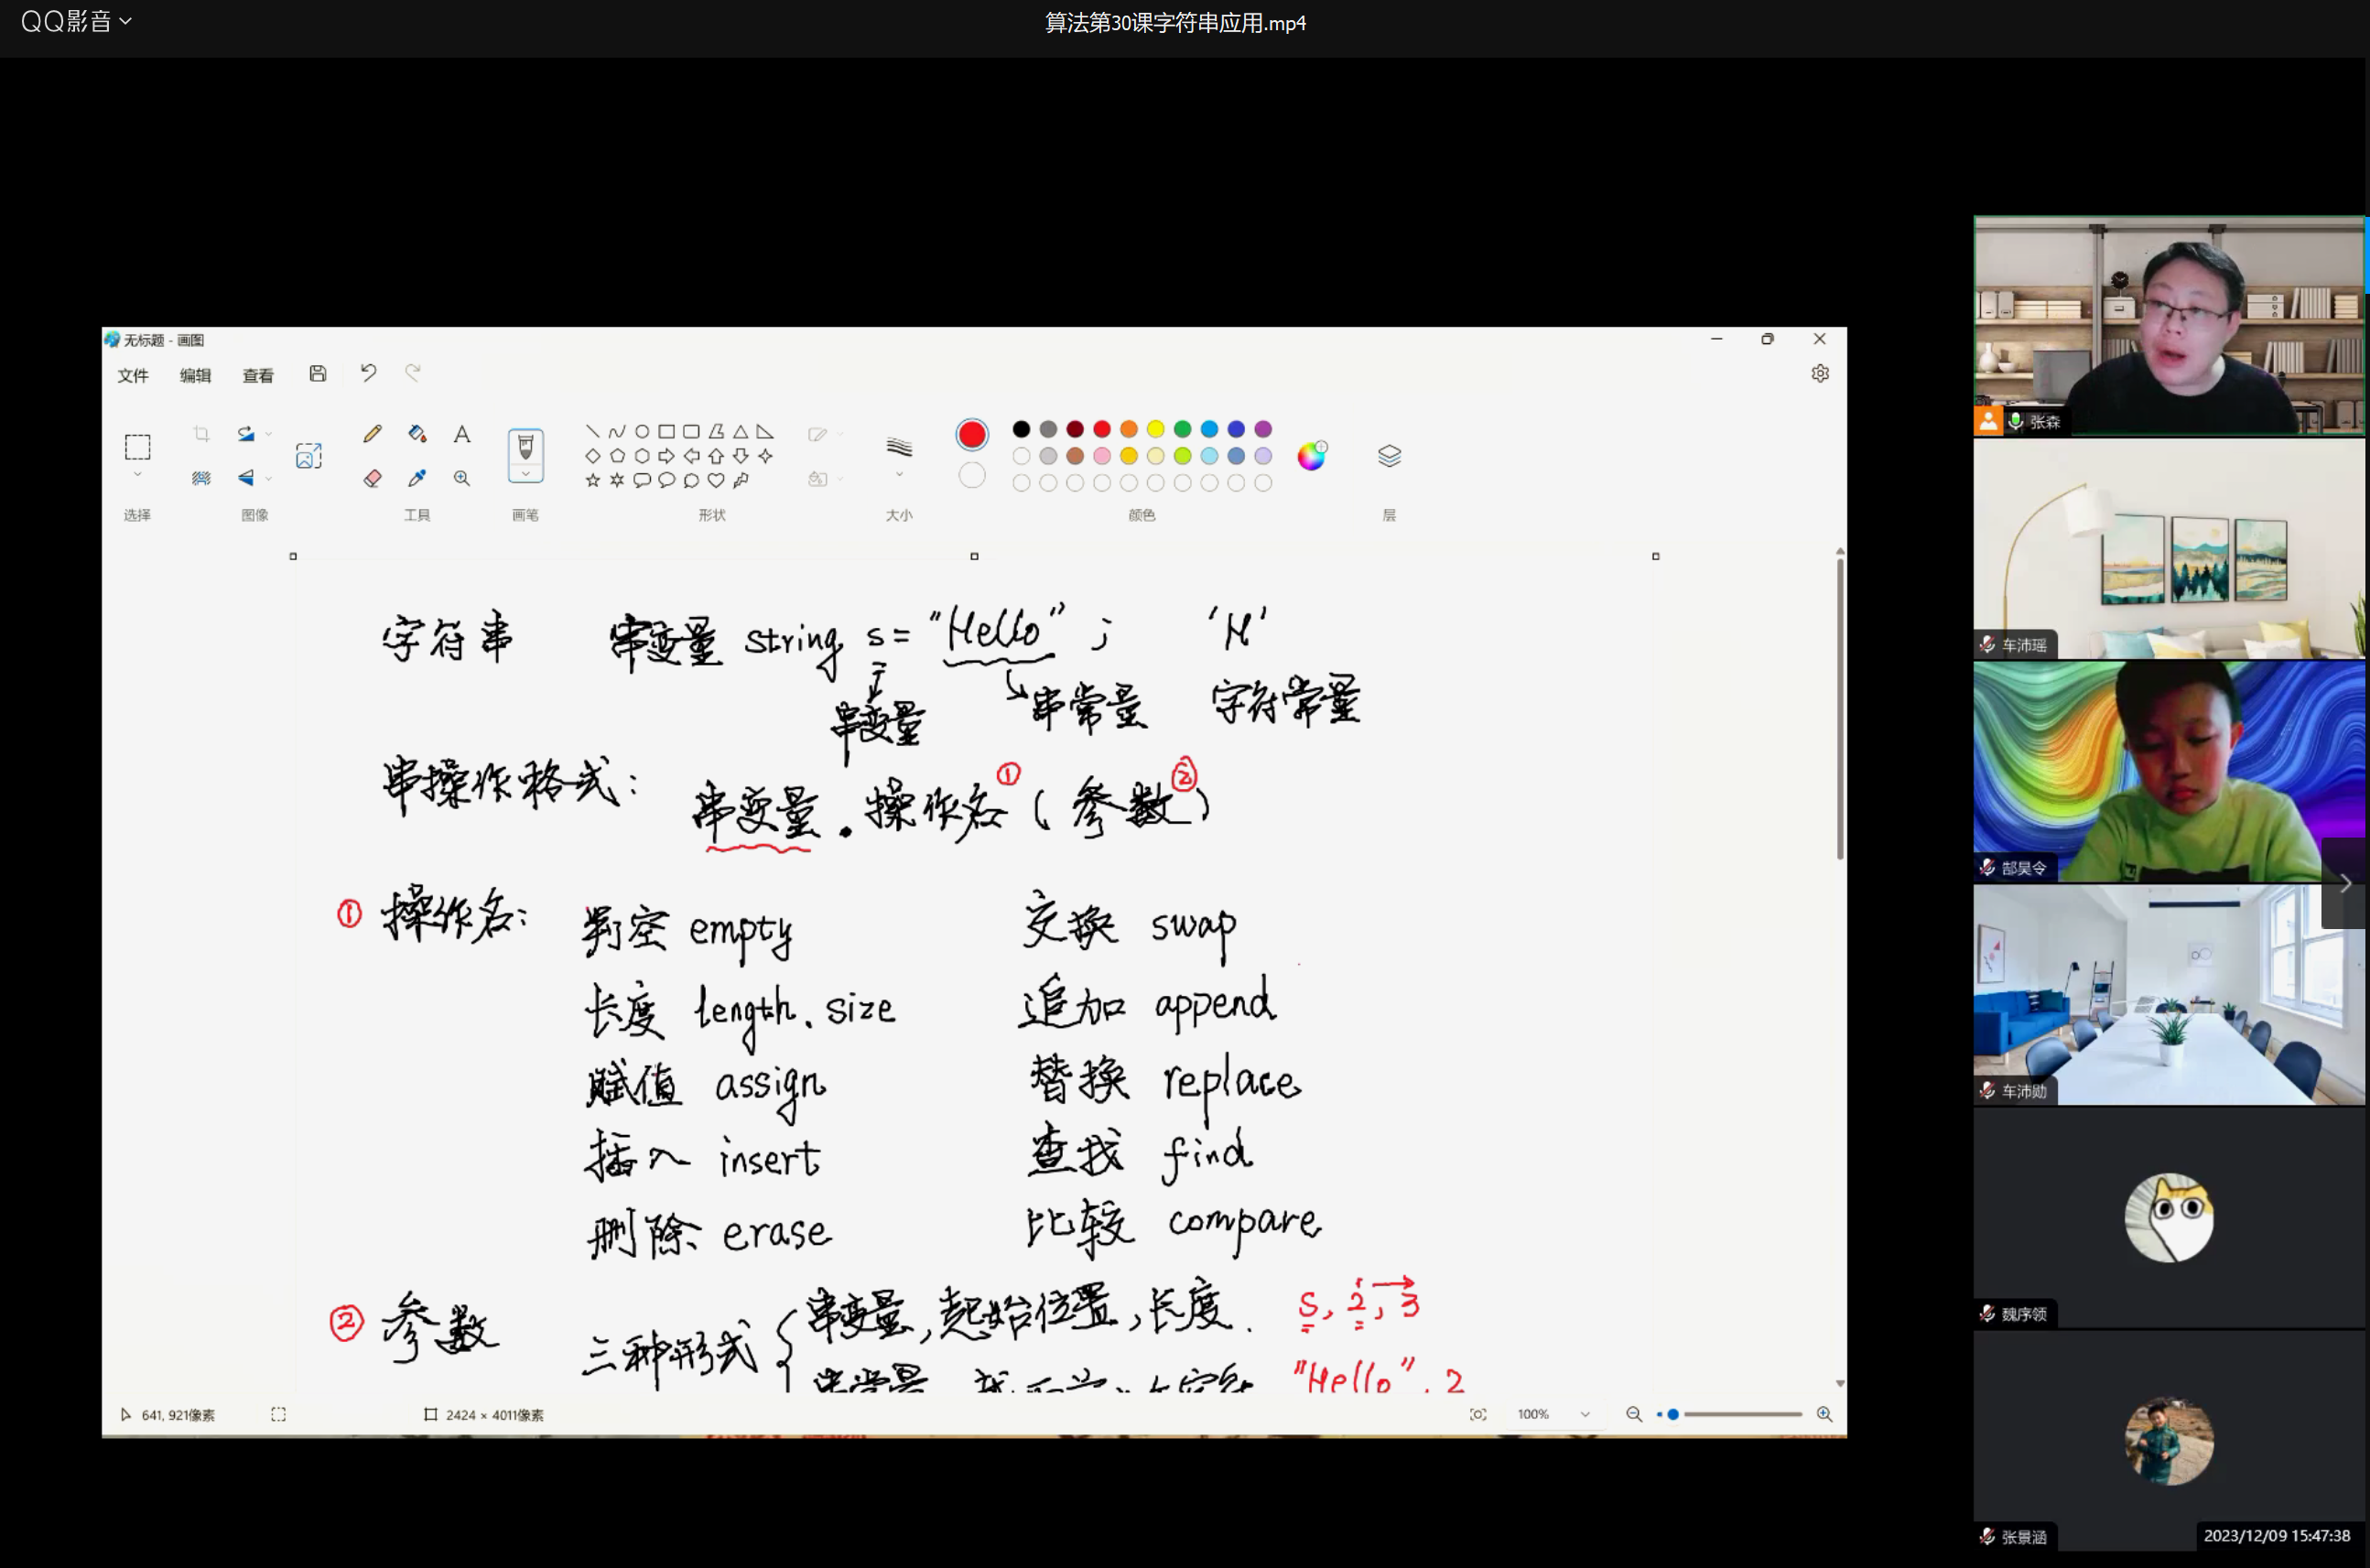 QQ影音
算法第30课字符串应用.mp4
无标题 - 画图
文件 编辑 查看
选择 图像 工具 画笔 形状 大小 颜色 层
字符串 串变量 string s = "Hello" ; 'H'
串变量 串常量 字符常量
串操作格式: 串变量.操作名①(参数②)
① 操作名: 判空 empty 交换 swap
长度 length、size 追加 append
赋值 assign 替换 replace
插入 insert 查找 find
删除 erase 比较 compare
② 参数 三种形式 { 串变量, 起始位置, 长度. s, 2, 3
串常量 "Hello", 2
641, 921像素 2424 × 4011像素 100%
张森
车沛瑶
郜昊令
车沛勋
魏序领
张景涵
2023/12/09 15:47:38